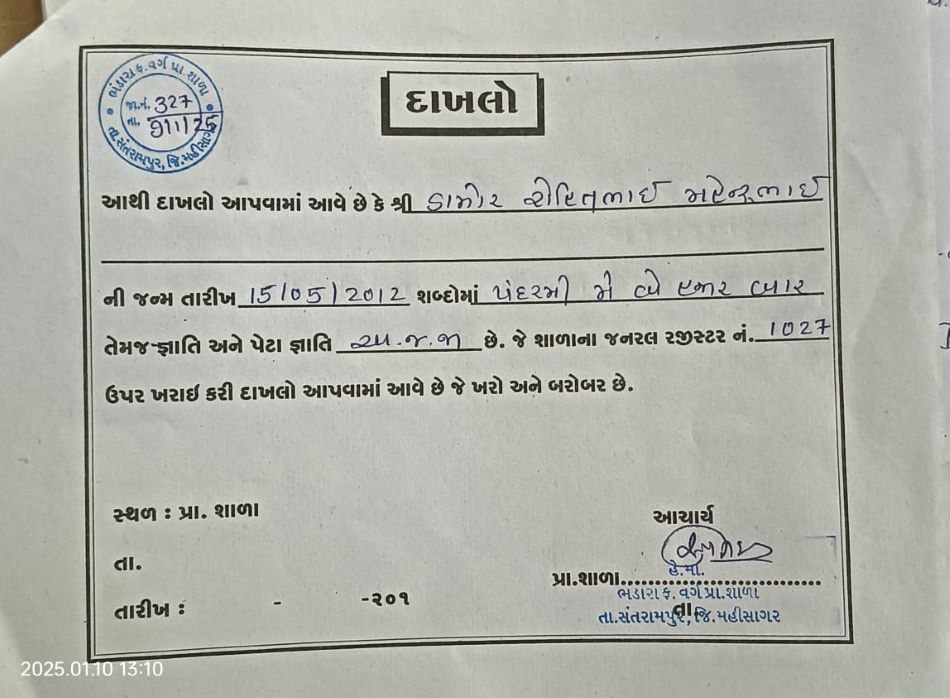 ભંડારા ફ. વર્ગ પ્રા. શાળા
જા.નં. 327
તા. 9/1/25
તા.સંતરામપુર, જિ.મહીસાગર
દાખલો
આથી દાખલો આપવામાં આવે છે કે શ્રી ડામોર રોહિતભાઈ મહેન્દ્રભાઈ
ની જન્મ તારીખ 15/05/2012 શબ્દોમાં પંદરમી મે બે હજાર બાર
તેમજ જ્ઞાતિ અને પેટા જ્ઞાતિ અ.જ.જા છે. જે શાળાના જનરલ રજીસ્ટર નં. 1027
ઉપર ખરાઇ કરી દાખલો આપવામાં આવે છે જે ખરો અને બરોબર છે.
સ્થળ : પ્રા. શાળા
આચાર્ય
તા.
પ્રા.શાળા
હે.મા.
ભંડારા ફ. વર્ગ પ્રા.શાળા
તારીખ : - -૨૦૧
તા
તા.સંતરામપુર, જિ.મહીસાગર
2025.01.10 13:10